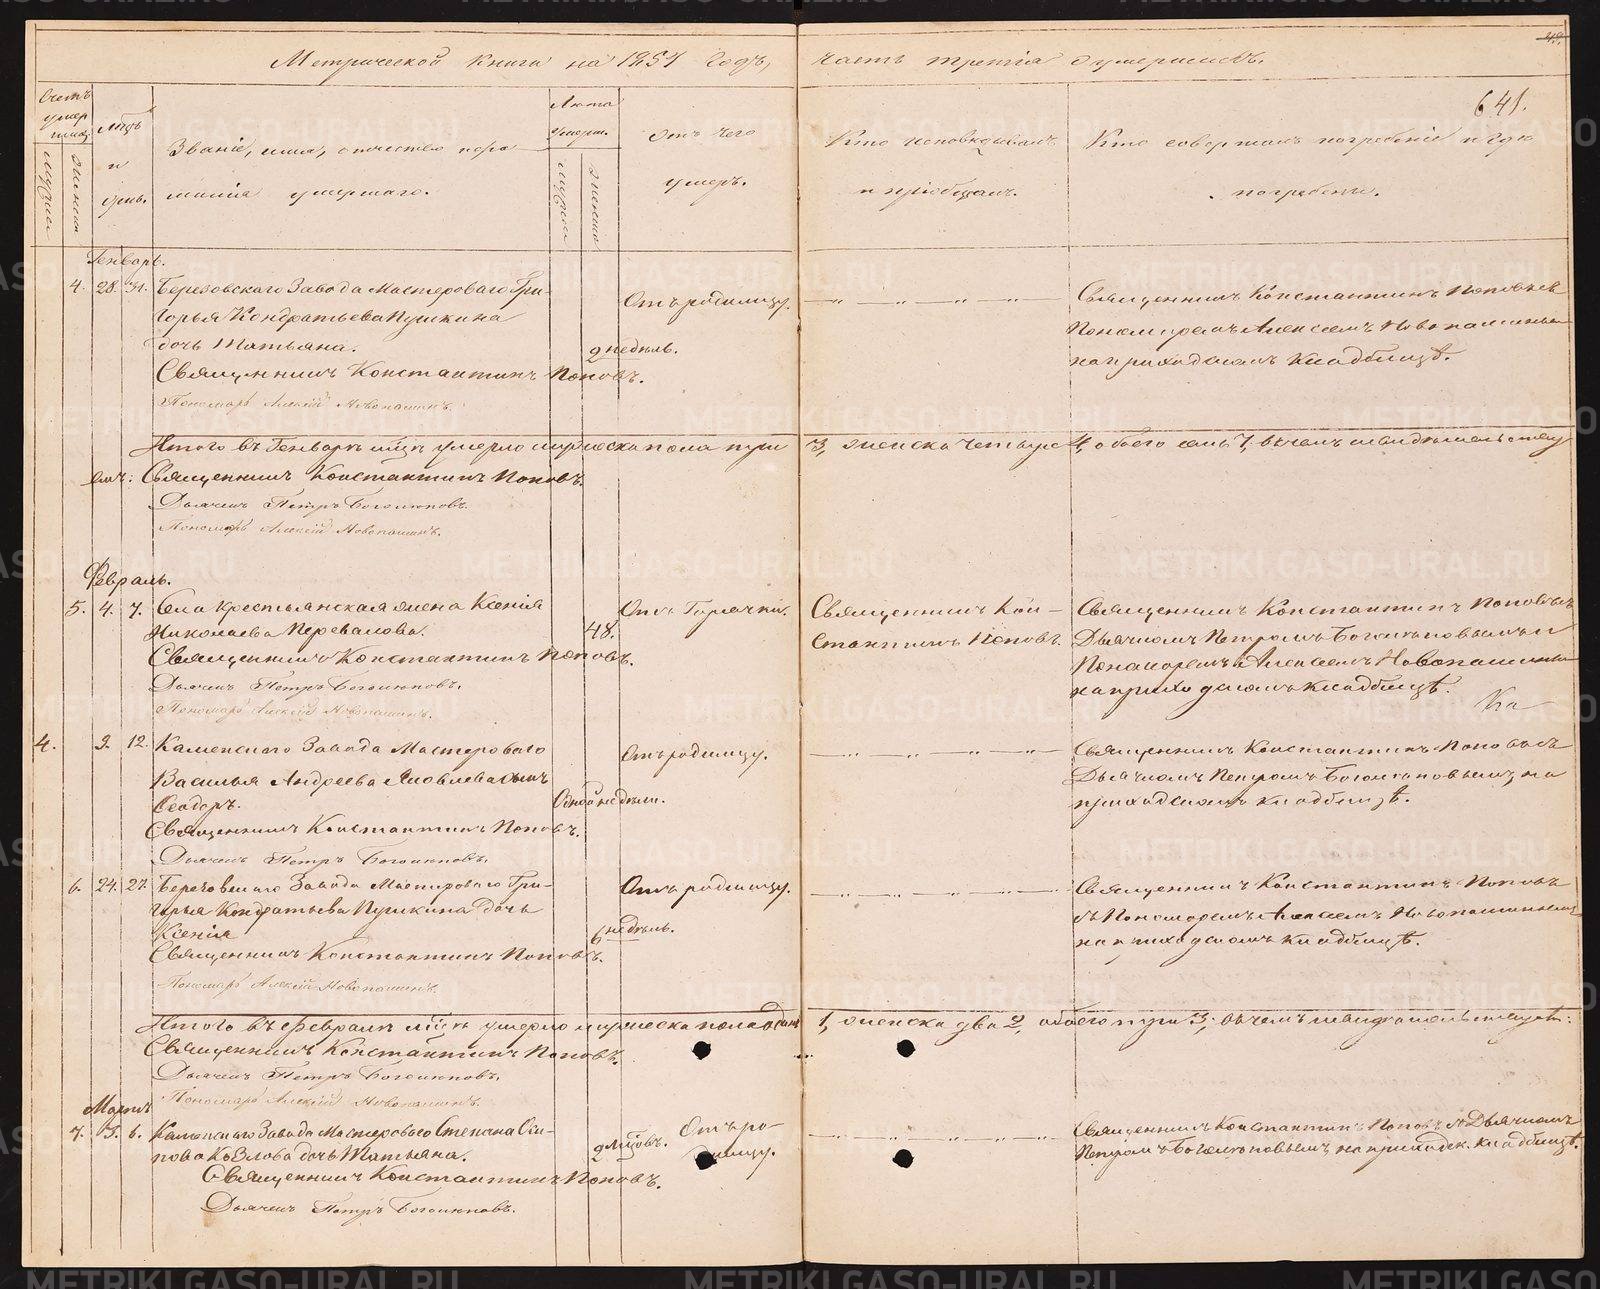 Метрической книги на 1857 годъ, часть третія о умершихъ.
641.
Счетъ умер шихъ
Мужеска
Женска
Мѣсяцъ и день.
Званіе, имя, отчество и фамилія умершаго.
Лѣта умерш.
Мужеска
Женска
Отъ чего умеръ.
Кто исповѣдывалъ и пріобщалъ.
Кто совершалъ погребеніе и гдѣ погребены.
Генварь.
4. 28. 31. Березовскаго Завода Мастероваго Гри-
горья Кондратьева Пушкина
дочь Татьяна.
2 недѣль.
Отъ родимцу.
Священникъ Константинъ Поповъ съ
Пономаремъ Алексѣемъ Новопашинымъ
на приходскомъ кладбищѣ.
Священникъ Константинъ Поповъ.
Пономарь Алексій Новопашинъ.
Итого въ Генварѣ мцѣ умерло мужеска пола три 3, женска четыре 4, обоего семь 7; въ чемъ и свидѣтельству
емъ: Священникъ Константинъ Поповъ.
Дьячекъ Петръ Боголюповъ.
Пономарь Алексій Новопашинъ.
Февраль.
5. 4. 7. Села крестьянская жена Ксенія
Николаева Перевалова.
48.
Отъ Горячки.
Священникъ Кон-
стантинъ Поповъ.
Священникъ Константинъ Поповъ съ
Дьячкомъ Петромъ Боголюповымъ и
Пономаремъ Алексѣемъ Новопашинымъ
на приходскомъ кладбищѣ.
Священникъ Константинъ Поповъ.
Дьячекъ Петръ Боголюповъ.
Пономарь Алексій Новопашинъ.
4. 9. 12. Каменскаго Завода Мастероваго
Василья Андреева Яковлева сынъ
Ѳеодоръ.
Одной недѣли.
Отъ родимцу.
Священникъ Константинъ Поповъ съ
Дьячкомъ Петромъ Боголюповымъ, на
приходскомъ кладбищѣ.
Священникъ Константинъ Поповъ.
Дьячекъ Петръ Боголюповъ.
6. 24. 27. Березовскаго Завода Мастероваго Гри-
горья Кондратьева Пушкина дочь
Ксенія
6 недѣль.
Отъ родимцу.
Священникъ Константинъ Поповъ
съ Пономаремъ Алексѣемъ Новопашинымъ
на приходскомъ кладбищѣ.
Священникъ Константинъ Поповъ.
Пономарь Алексій Новопашинъ.
Итого въ Февралѣ мцѣ умерло мужеска пола одинъ 1, женска два 2, обоего три 3; въ чемъ и свидѣтельствуемъ:
Священникъ Константинъ Поповъ.
Дьячекъ Петръ Боголюповъ.
Пономарь Алексій Новопашинъ.
Мартъ
7. 3. 6. Каменскаго Завода Мастероваго Степана Оси-
пова Козлова дочь Татьяна.
2 мцовъ.
Отъ ро-
димцу.
Священникъ Константинъ Поповъ съ Дьячкомъ
Петромъ Боголюповымъ, на приходск. кладбищѣ.
Священникъ Константинъ Поповъ.
Дьячекъ Петръ Боголюповъ.
METRIKI.GASO-URAL.RU